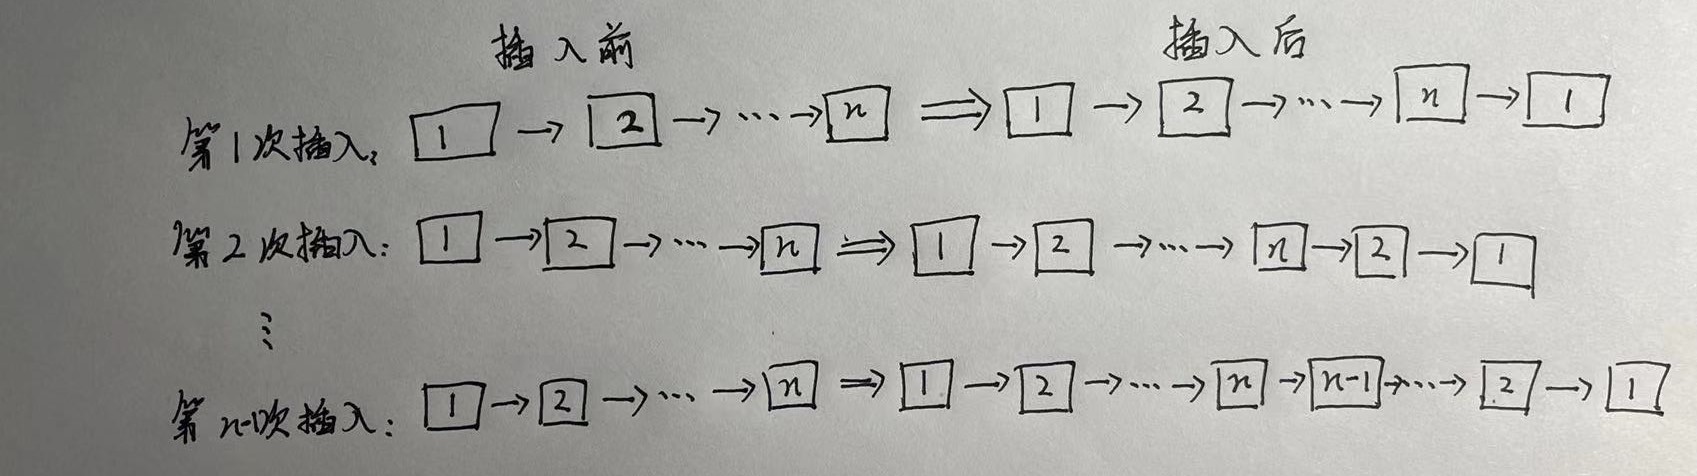 插入前 插入后
第1次插入: 1 → 2 → ⋯ → n ⇒ 1 → 2 → ⋯ → n → 1
第2次插入: 1 → 2 → ⋯ → n ⇒ 1 → 2 → ⋯ → n → 2 → 1
⋮
第n-1次插入: 1 → 2 → ⋯ → n ⇒ 1 → 2 → ⋯ → n → n-1 → ⋯ → 2 → 1